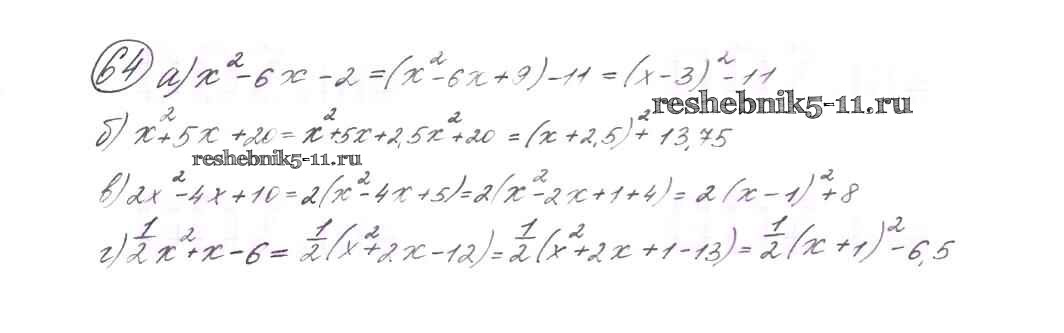 64 а) x² - 6x - 2 = (x² - 6x + 9) - 11 = (x - 3)² - 11
reshebnik5-11.ru
б) x² + 5x + 20 = x² + 5x + 2,5x² + 20 = (x + 2,5)² + 13,75
reshebnik5-11.ru
в) 2x² - 4x + 10 = 2(x² - 4x + 5) = 2(x² - 2x + 1 + 4) = 2(x - 1)² + 8
г) 1/2 x² + x - 6 = 1/2 (x² + 2x - 12) = 1/2 (x² + 2x + 1 - 13) = 1/2 (x + 1)² - 6,5